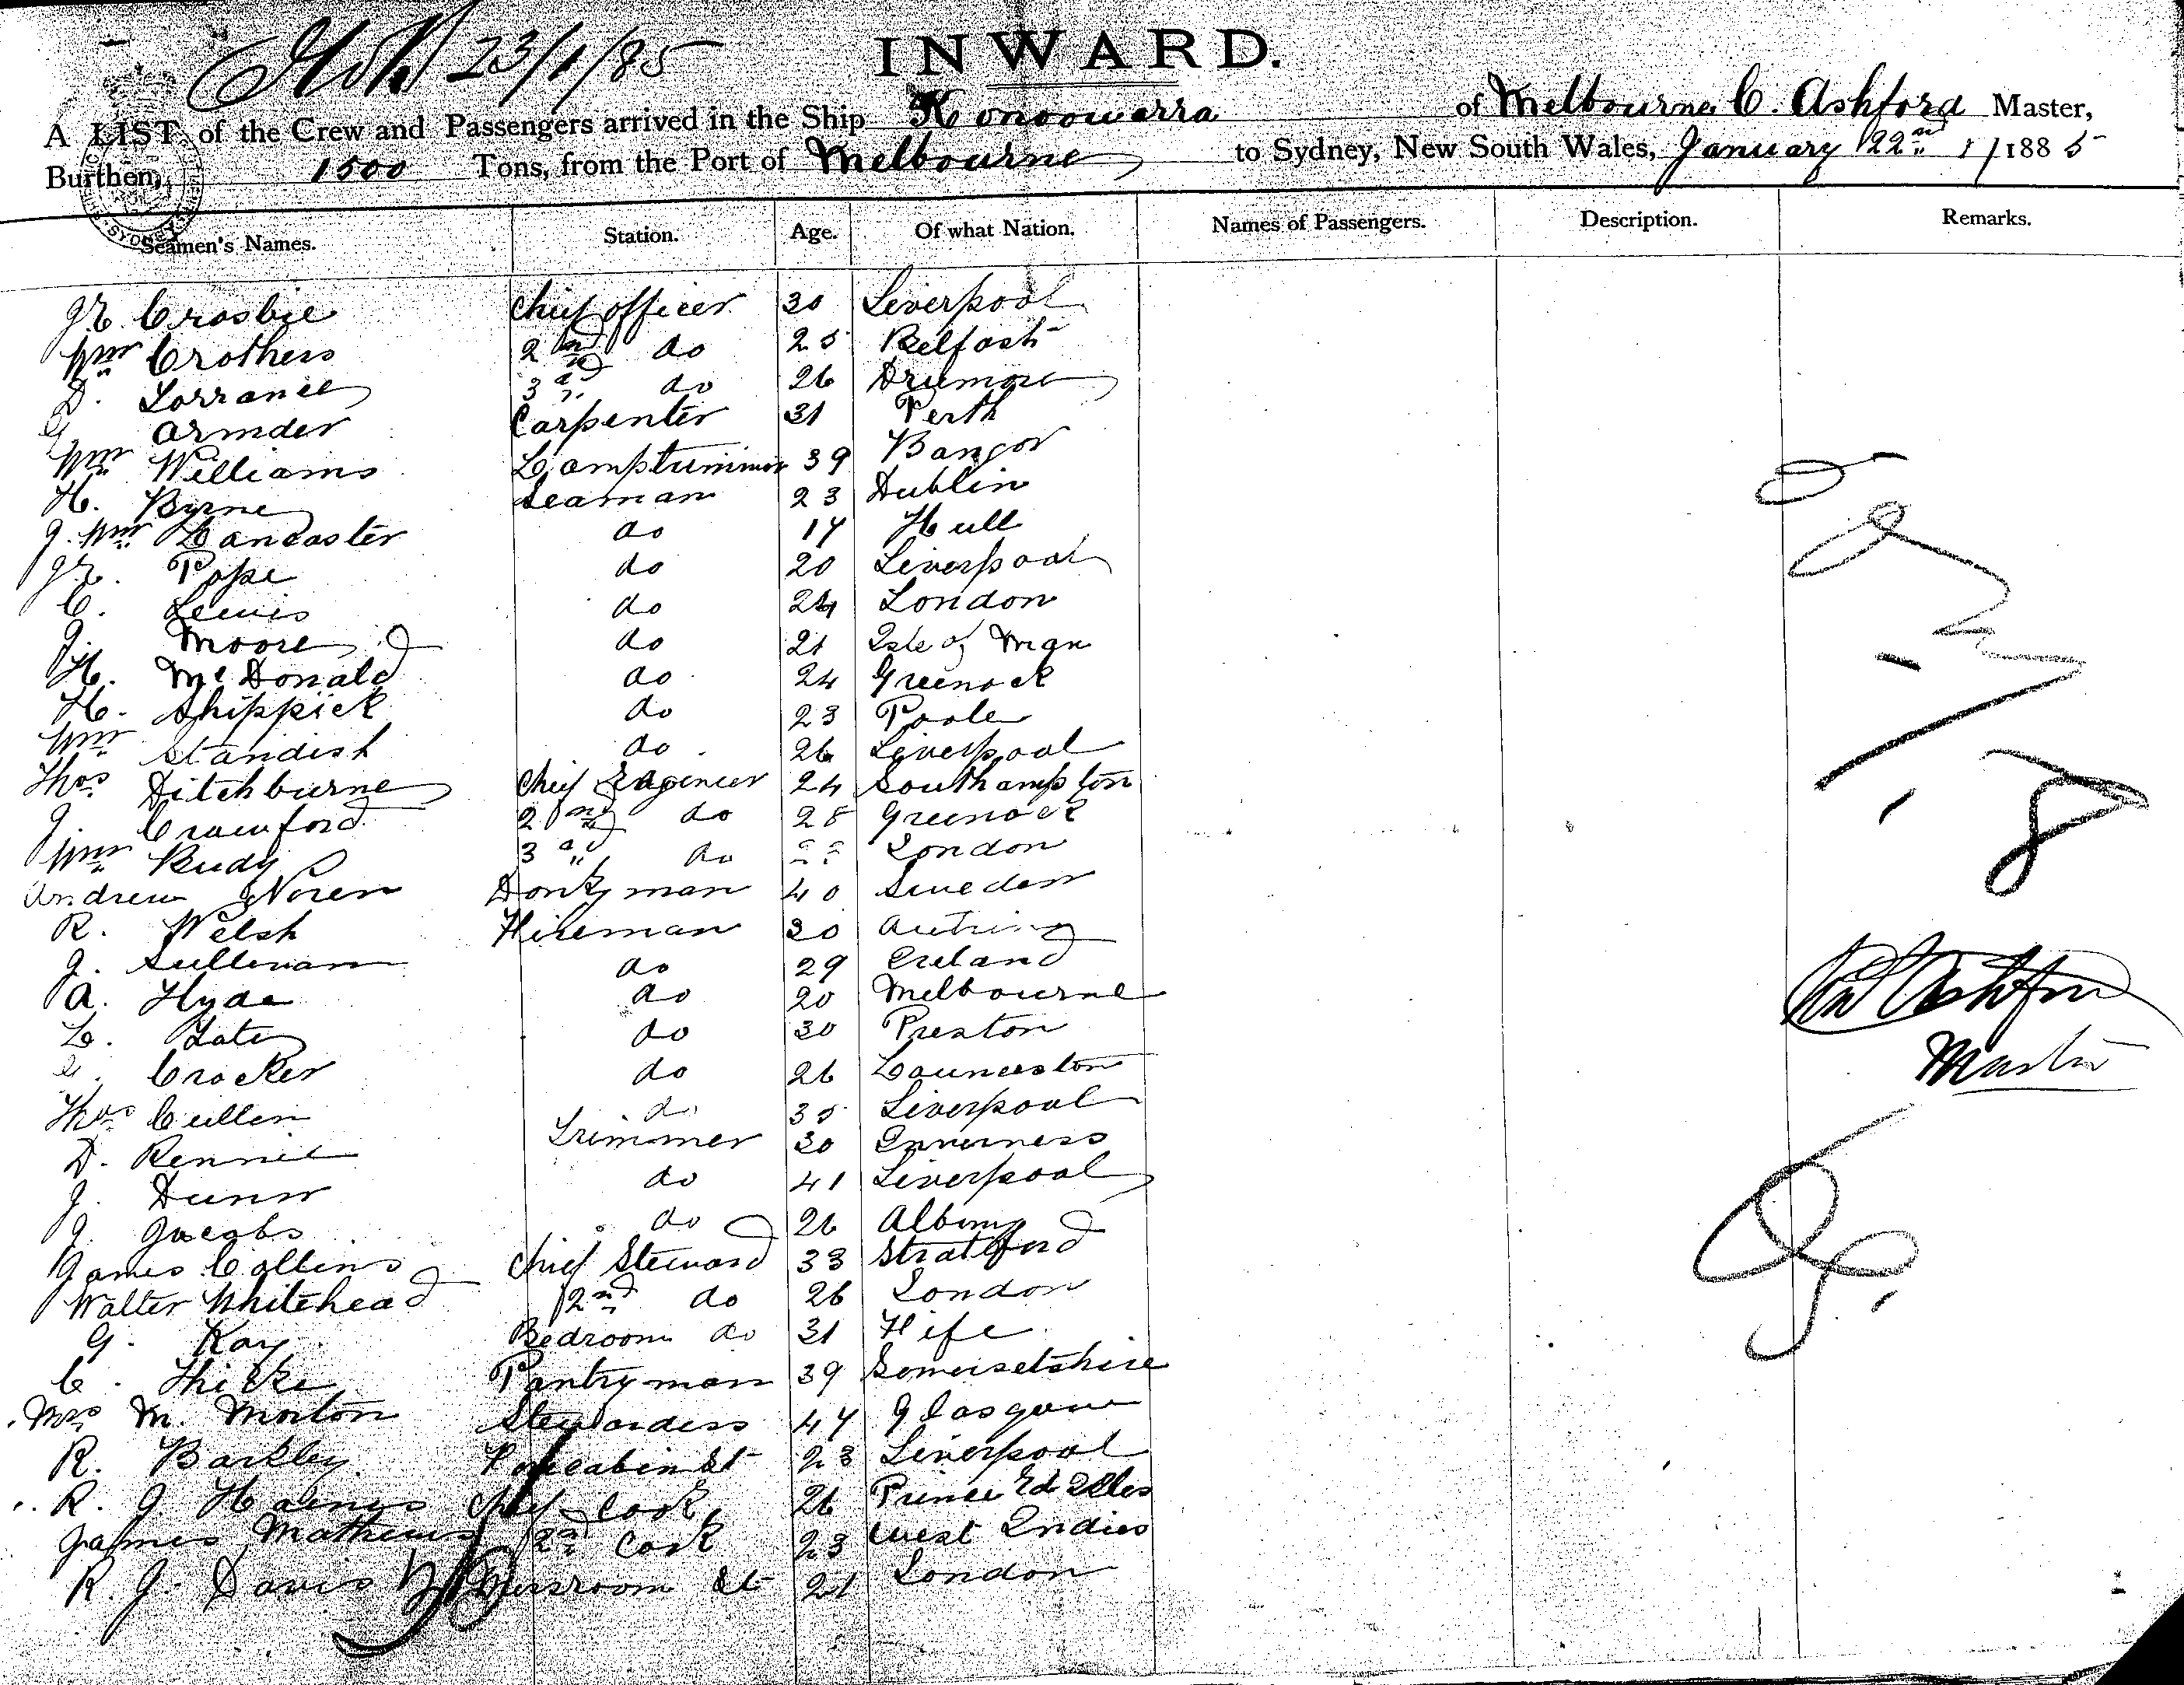 23/1/85
INWARD.
A LIST of the Crew and Passengers arrived in the Ship Konoowarra of Melbourne C. Ashford Master,
Burthen, 1500 Tons, from the Port of Melbourne to Sydney, New South Wales, January 22nd 1885
Seamen's Names. Station. Age. Of what Nation. Names of Passengers. Description. Remarks.
Crosbie Chief officer 30 Liverpool
Wm Crothers 2nd do 25 Belfast
D. Lorrance 3rd do 26 Drumore
Armder Carpenter 31 Perth
Wm Williams Lamptrimmer 39 Bangor
H. Byrne Seaman 23 Dublin
J. Wm Lancaster do 17 Hull
Pope do 20 Liverpool
C. Lewis do 24 London
J. Moore do 21 Isle of Man
H. McDonald do 24 Greenock
H. Shippick do 23 Poole
Wm Standish do 26 Liverpool
Thos Ditchburne Chief Engeneer 24 Southampton
J. Crawford 2nd do 28 Greenock
Wm Rudy 3rd do London
Andrew Noren Donkyman 40 Sweden
R. Welsh Fireman 30
J. Sullivan do 29 Ireland
A. Hyde do 20 Melbourne
L. do 30 Preston
Crocker do 26 Launceston
Thos Cullen do 35 Liverpool
D. Rennie Trimmer 30 Inverness
J. Dunn do 41 Liverpool
J. Jacobs do 26 Albury
James Collins Chief Steward 33 Stratford
Walter Whitehead 2nd do 26 London
G. Kay Bedroom do 31 Fife
C. Pantryman 39 Somersetshire
Mrs M. Morton Stewardess 47 Glasgow
R. Barkley Forecabin St 23 Liverpool
R. J. Haynes Chief Cook 26 Prince Ed Isles
James Mathews 2nd Cook 23 West Indies
R. J. Davis Messroom St 21 London
Ashford
Master